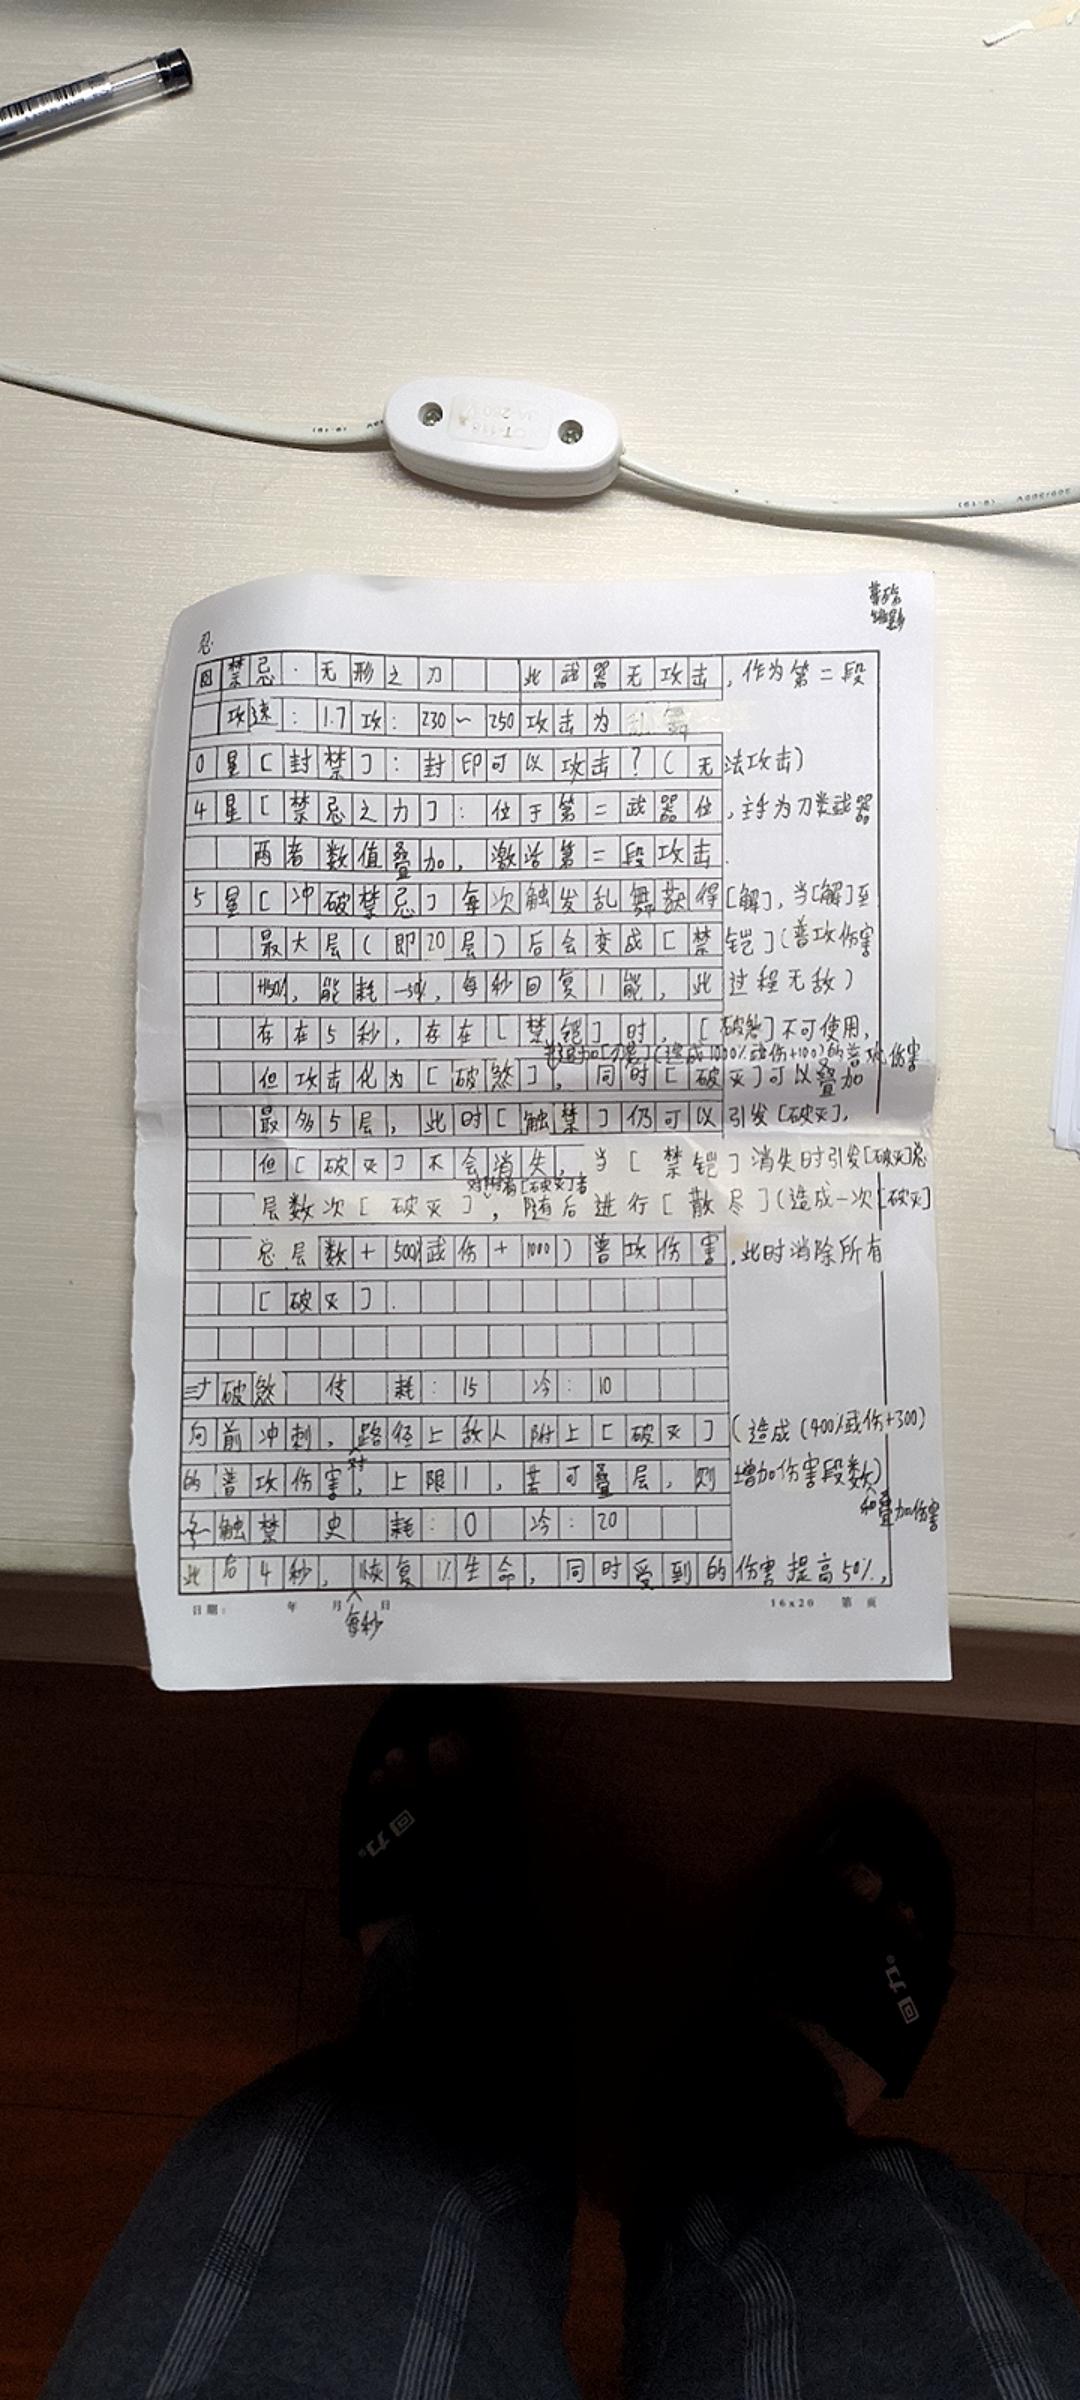 忍
図禁忌·无形之刀 此武器无攻击,作为第二段
攻速:1.7攻:230~250攻击为乱舞
0星[封禁]:封印可以攻击?(无法攻击)
4星[禁忌之力]:位于第二武器位,主手为刀类武器
两者数值叠加,激活第二段攻击.
5星[冲破禁忌]每次触发乱舞获得[解],当[解]至
最大层(即20层)后会变成[禁铠](普攻伤害
能耗,每秒回复1能,此过程无敌)
存在5秒,存在[禁铠]时,[破煞]不可使用,
(造成1000%武伤+100)的普攻伤害
但攻击化为[破煞],同时[破灭]可以叠加
最多5层,此时[触禁]仍可以引发[破灭],
但[破灭]不会消失,当[禁铠]消失时引发[破灭]总
对附着[破灭]者
层数次[破灭],随后进行[散尽](造成一次[破灭]
总层数+500%武伤+1000)普攻伤害,此时消除所有
[破灭].
破煞 传 耗:15 冷:10
向前冲刺,路径上敌人附上[破灭](造成(400%武伤+300)
的普攻伤害,上限1,若可叠层,则增加伤害段数)
对
和叠加伤害
触禁 史 耗:0 冷:20
此后4秒,恢复1%生命,同时受到的伤害提高50%,
每秒
日期: 年 月 日 16x20 第 页
回力。
回力。